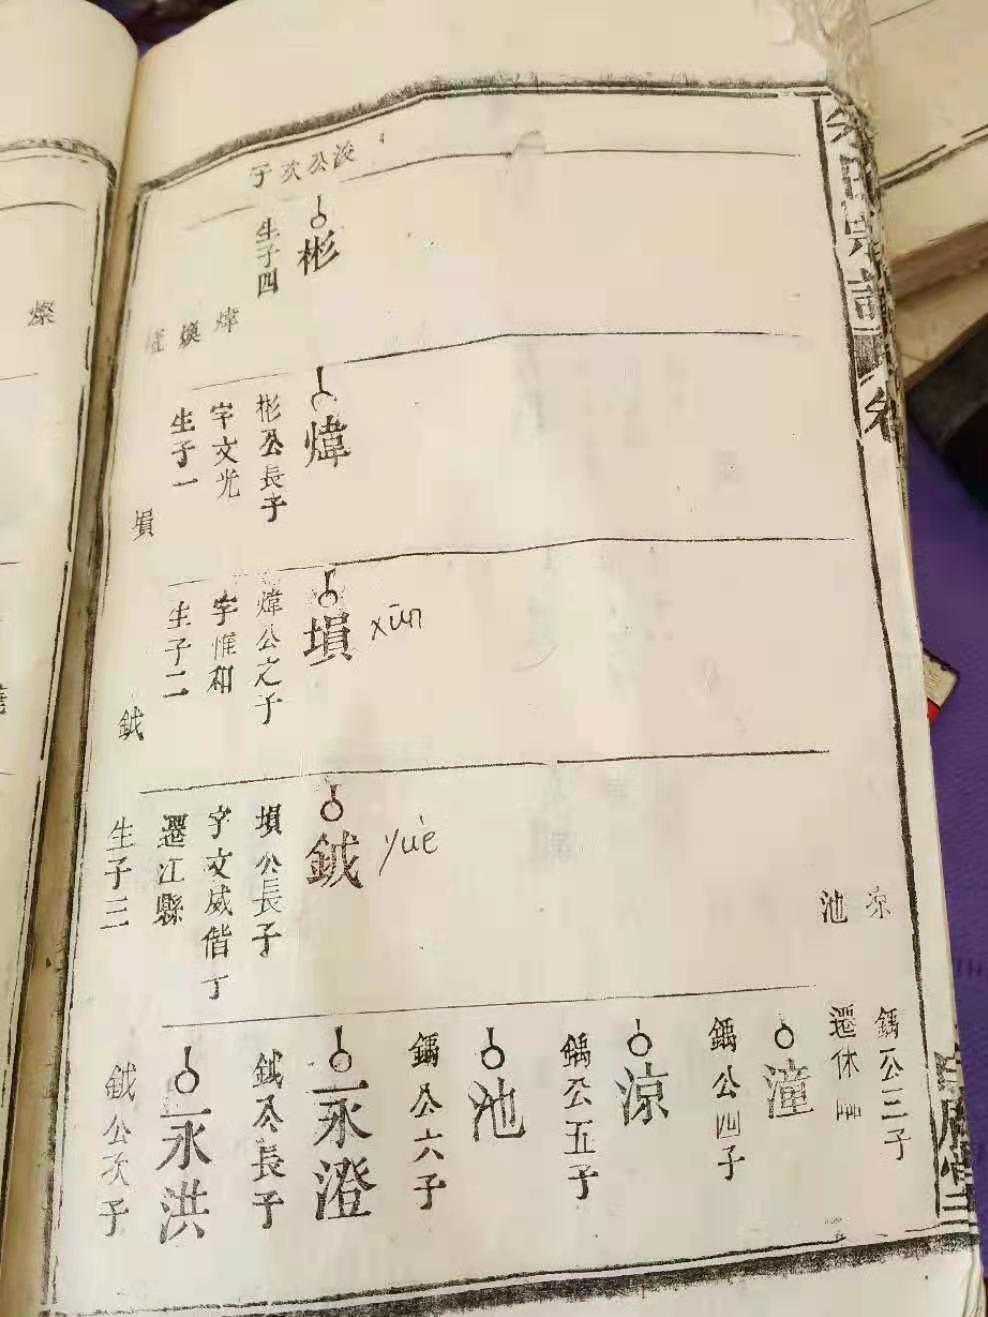 氏宗譜
浚公次子
彬
生子四
煒
煥
煒
彬公長子
字文光
生子一
塤
塤
xūn
煒公之子
字惟和
生子二
鉞
鉞
yuè
塤公長子
字文威偕丁
遷江縣
生子三
涼
池
鍝公三子
遷休
潼
鍝公四子
涼
鍝公五子
池
鍝公六子
永澄
鉞公長子
永洪
鉞公次子
燦